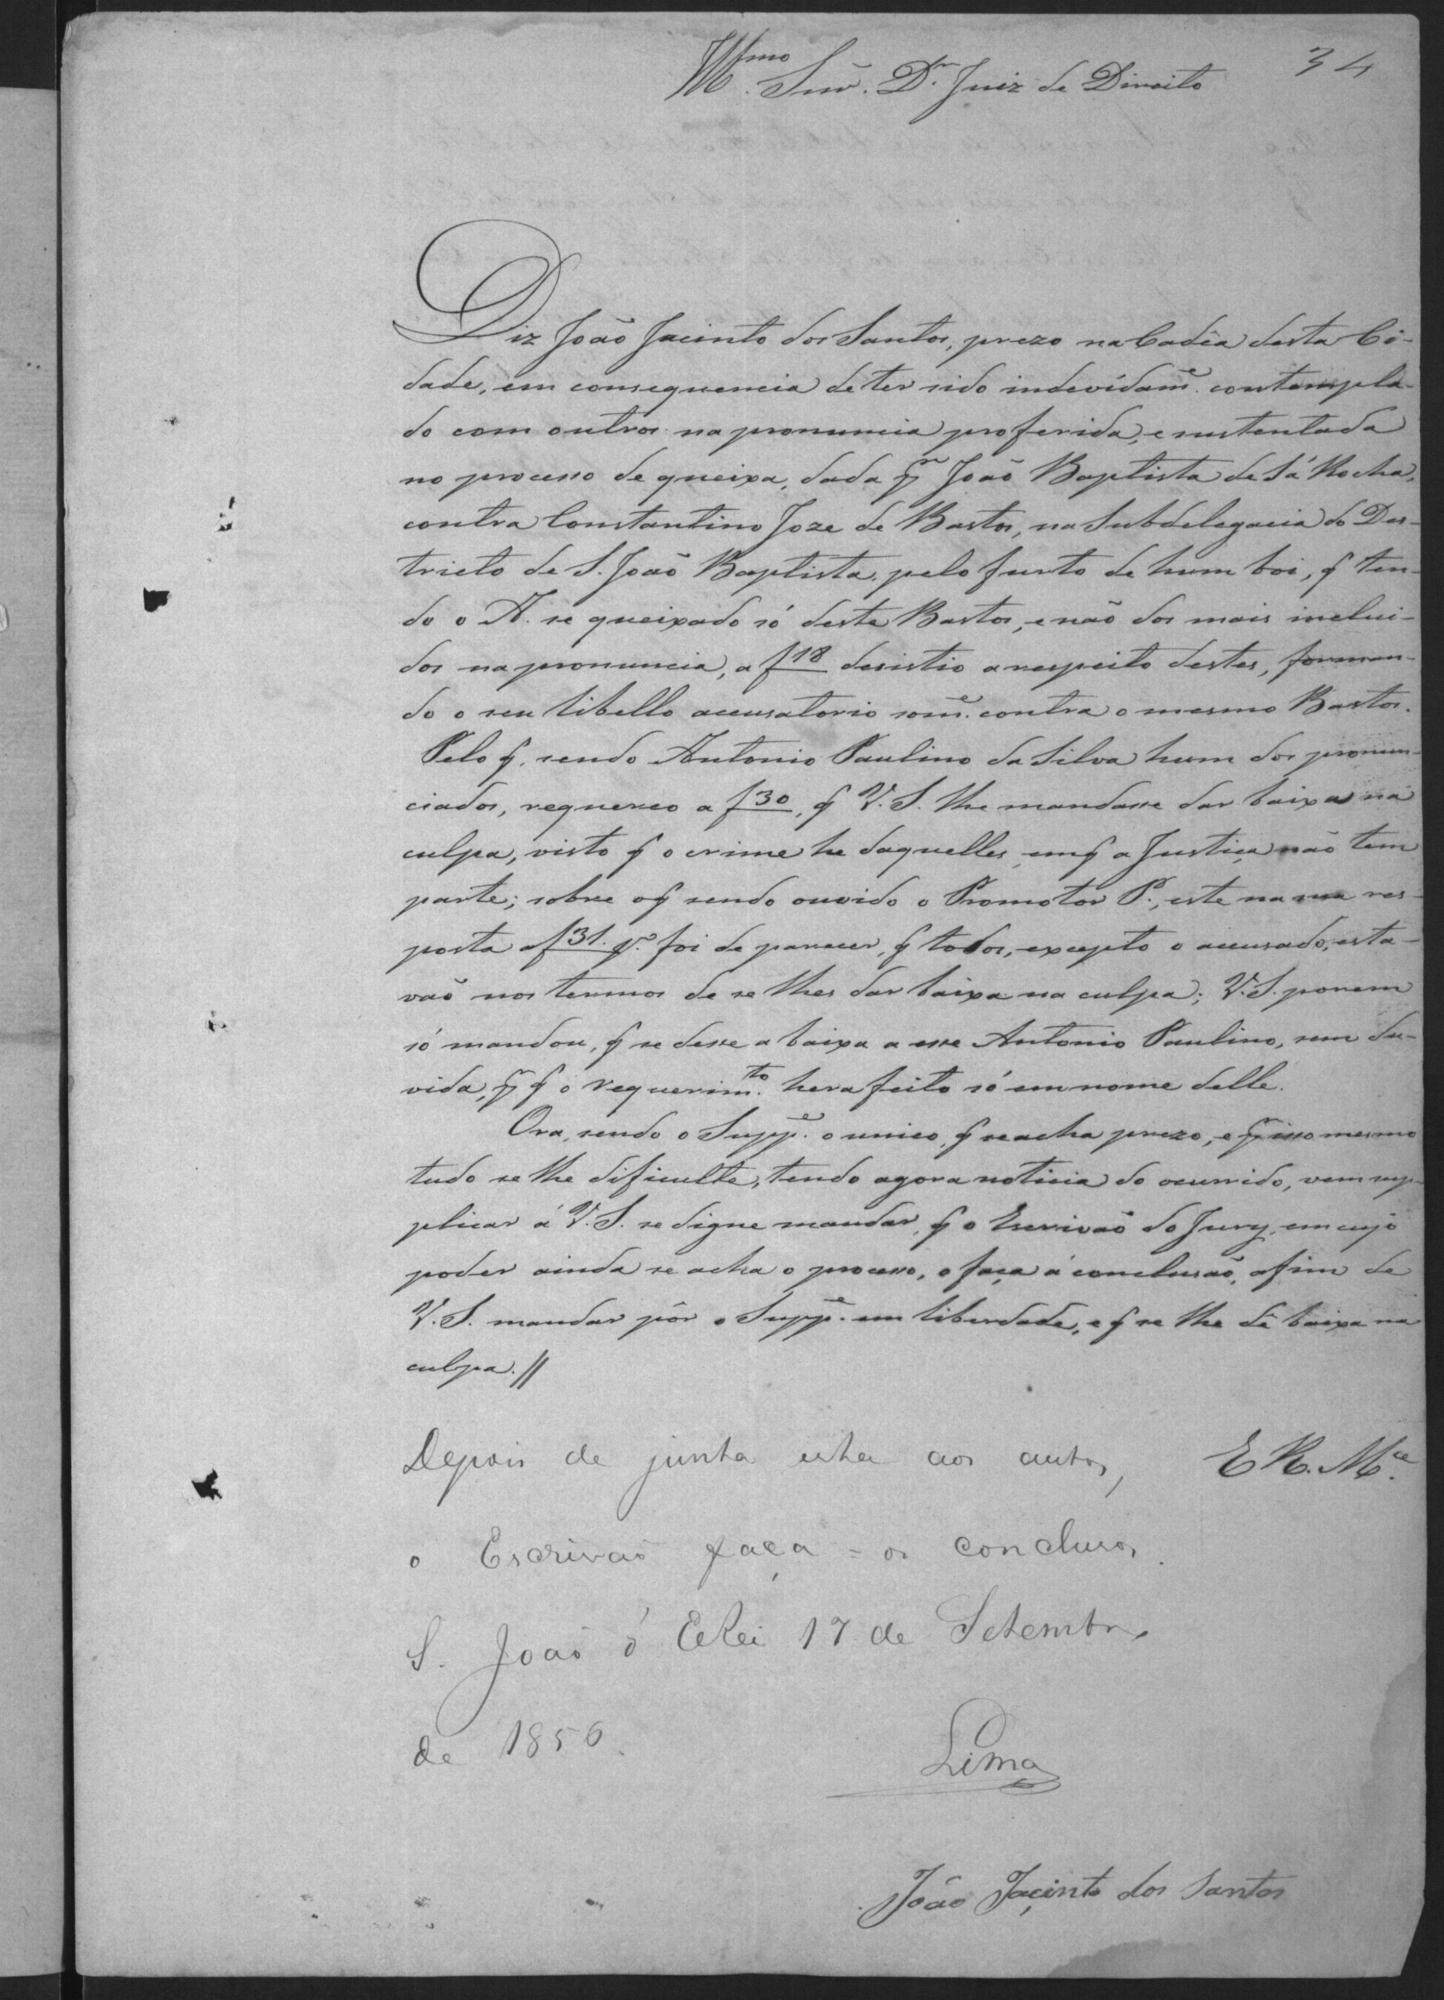 34
Illmo. Snr. Dr. Juiz de Direito
Diz João Jacinto dos Santos, prezo na Cadêa desta Ci-
dade, em consequencia de ter sido indevidame. contempla-
do com outros na pronuncia proferida, e sustentada
no processo de queixa, dada pr João Baptista de Sá Rocha,
contra Constantino Joze de Bastos, na Subdelegacia do Des-
tricto de S. João Baptista, pelo furto de hum boi, q ten-
do o A. se queixado só deste Bastos, e não dos mais inclui-
dos na pronuncia, a f 18 desistio a respeito destes, forman-
do o seu libello accusatorio some. contra o mesmo Bastos.
Pelo q, sendo Antonio Paulino da Silva hum dos pronun-
ciados, requereo a f 30, q V. S. lhe mandasse dar baixa na
culpa, visto q o crime he daquelles, em q a Justiça não tem
parte; sobre o q sendo ouvido o Promotor P., este na sua res-
posta a f 31. foi de parecer, q todos, excepto o accusado, esta-
vaõ nos termos de se lhes dar baixa na culpa; V. S. porem
só mandou, q se desse a baixa a esse Antonio Paulino, sem du-
vida, pr q o requerimto. hera feito só em nome delle.
Ora, sendo o Suppe. o unico, q se acha prezo, e pr isso mesmo
tudo se lhe dificulte, tendo agora noticia do ocurrido, vem sup-
plicar á V. S. se digne mandar, q o Escrivaõ do Jury, em cujo
poder ainda se acha o processo, o faça á conclusaõ, afim de
V. S. mandar pôr o Suppe. em liberdade, e q se lhe dê baixa na
culpa. //
E R. Mce.
Depois de junta esta aos autos,
o Escrivaõ faça = os conclusos.
S. Joaõ d' ElRei 17 de Setembro
de 1856.
Lima
João Jacinto dos Santos